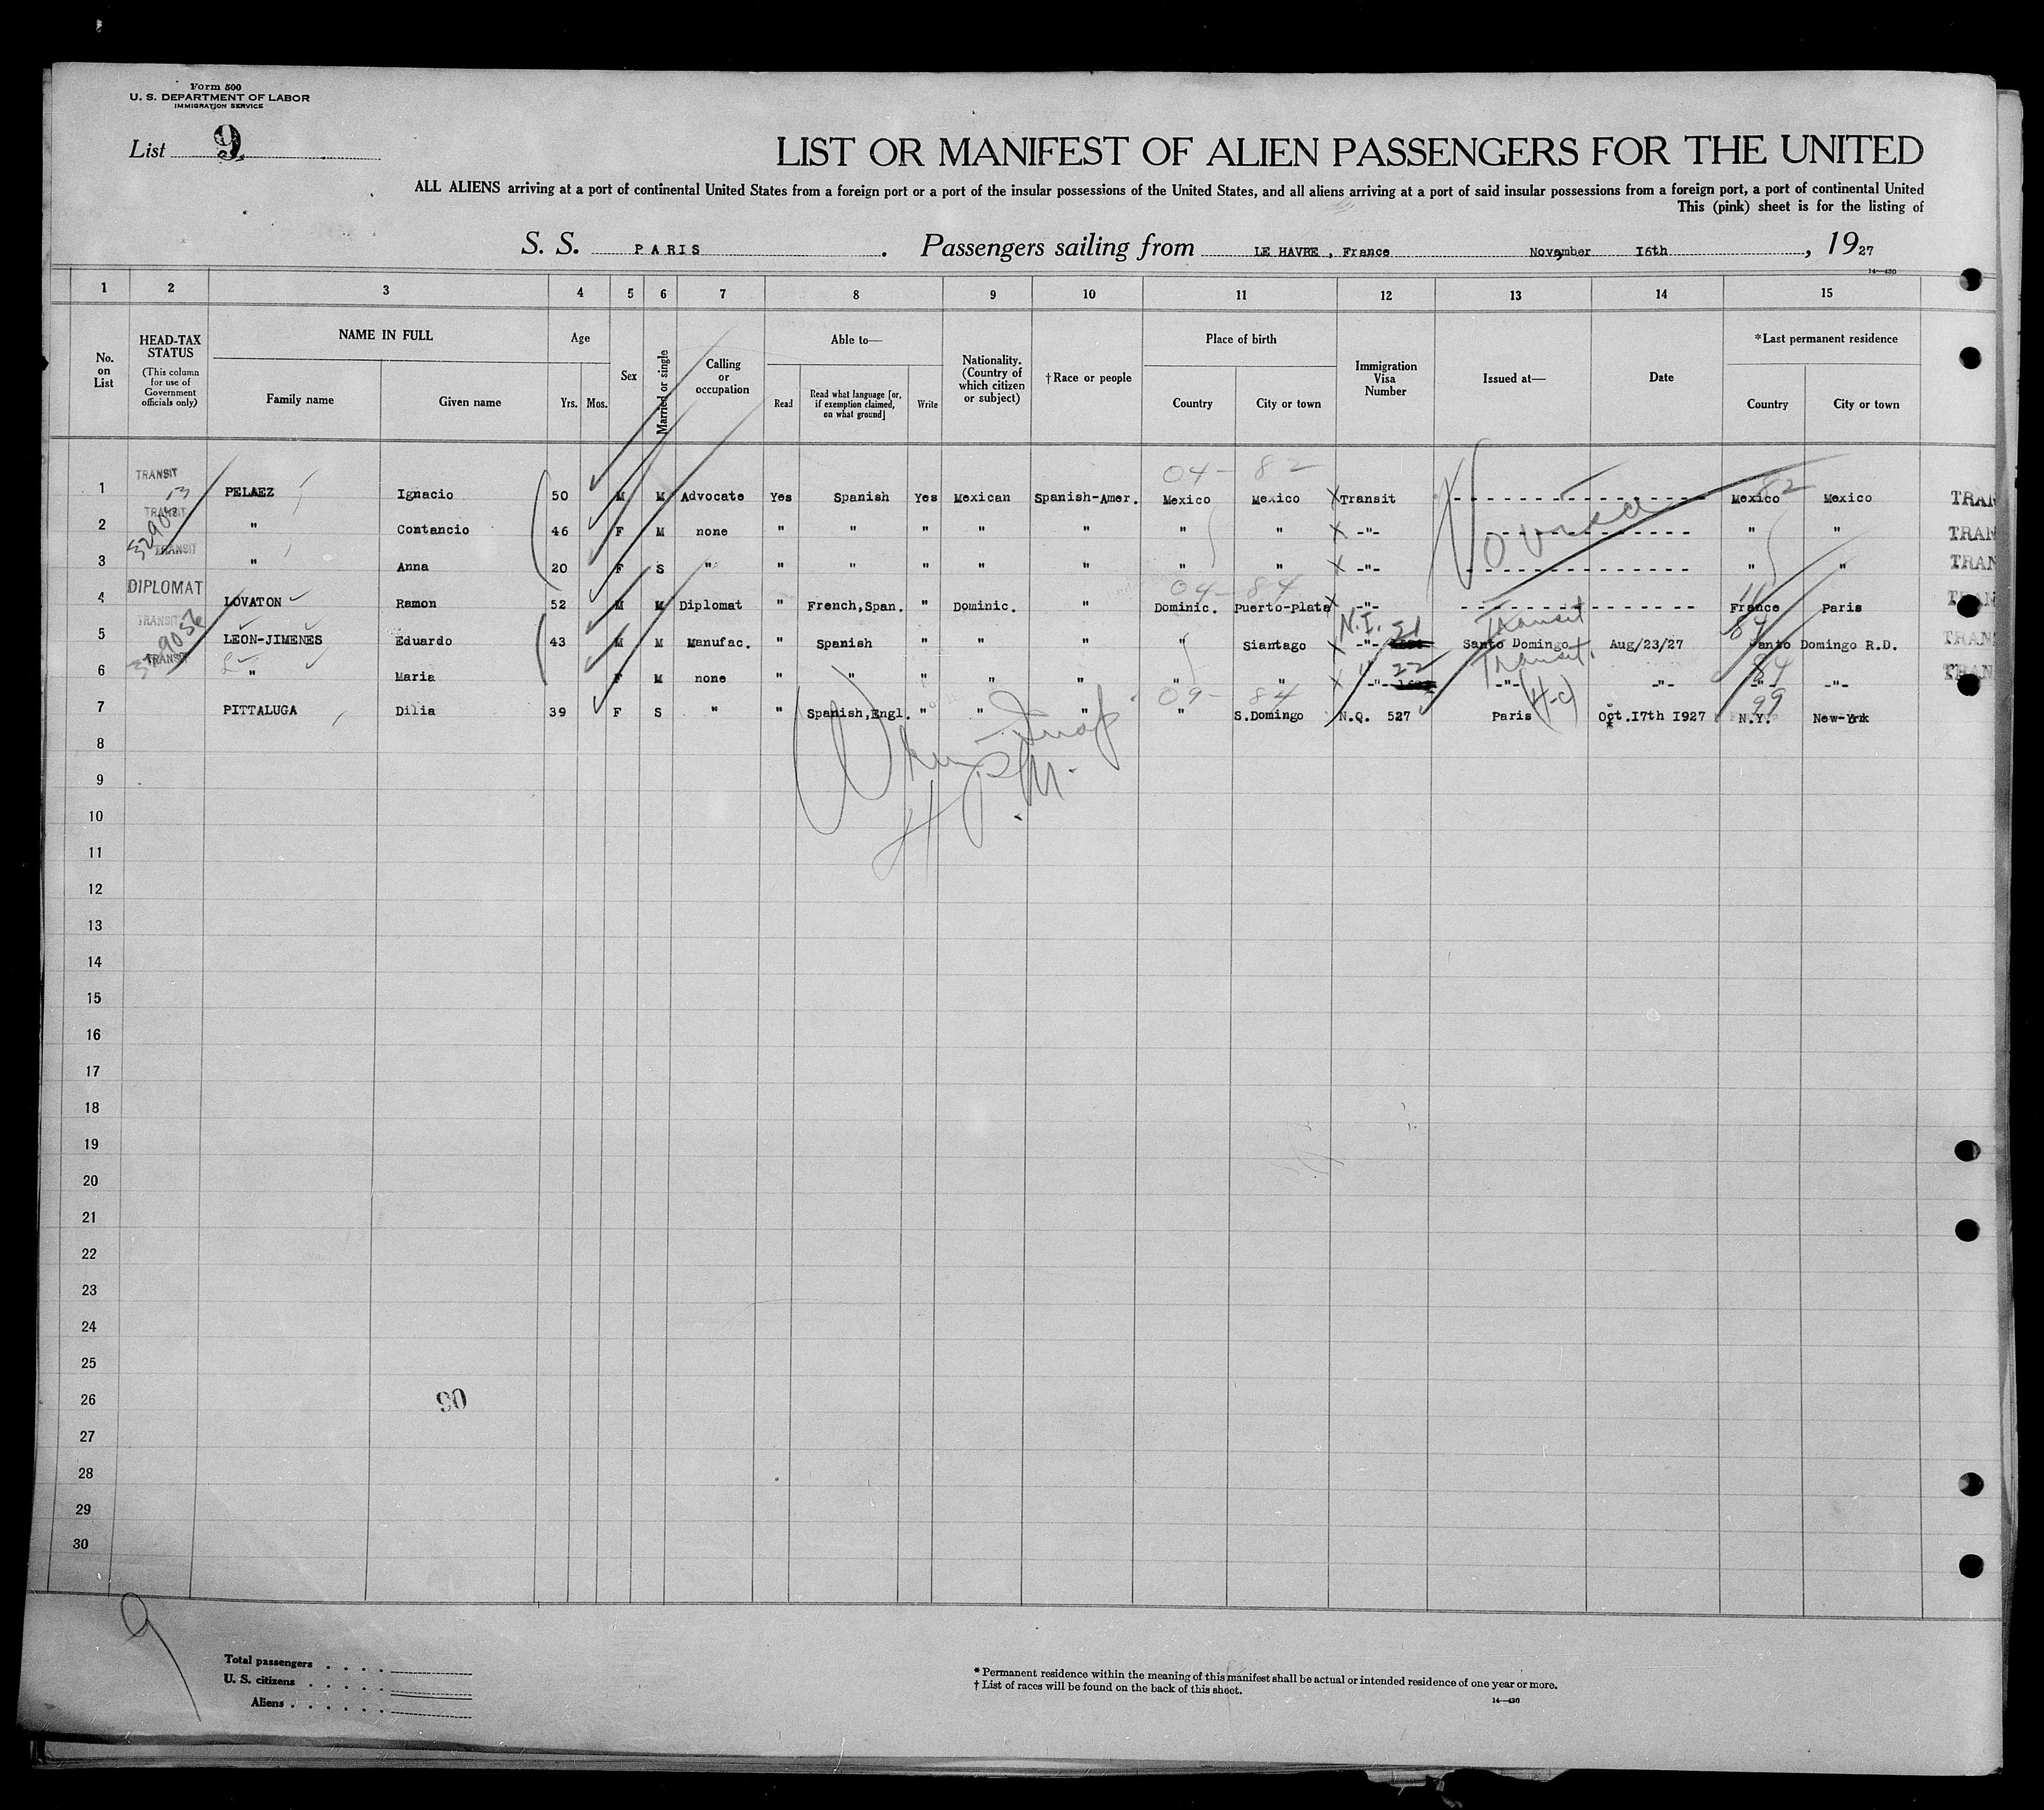 Form 500
U. S. DEPARTMENT OF LABOR
IMMIGRATION SERVICE
List 9
LIST OR MANIFEST OF ALIEN PASSENGERS FOR THE UNITED
ALL ALIENS arriving at a port of continental United States from a foreign port or a port of the insular possessions of the United States, and all aliens arriving at a port of said insular possessions from a foreign port, a port of continental United
This (pink) sheet is for the listing of
S. S. PARIS . Passengers sailing from LE HAVRE , France November 16th , 1927
14—430
1 2 3 4 5 6 7 8 9 10 11 12 13 14 15
No. on List
HEAD-TAX STATUS (This column for use of Government officials only)
NAME IN FULL
Family name Given name
Age
Yrs. Mos.
Sex
Married or single
Calling or occupation
Able to—
Read Read what language [or, if exemption claimed, on what ground] Write
Nationality. (Country of which citizen or subject)
†Race or people
Place of birth
Country City or town
Immigration Visa Number
Issued at—
Date
*Last permanent residence
Country City or town
04- 82
1 TRANSIT PELAEZ Ignacio 50 M M Advocate Yes Spanish Yes Mexican Spanish-Amer. Mexico Mexico X Transit - - - Mexico 82 Mexico TRAN
2 TRANSIT " Contancio 46 F M none " " " " " " " X -"- - - - " " TRAN
No visa
3 TRANSIT " Anna 20 F S " " " " " " " " X -"- - - - " " TRAN
04- 84
4 DIPLOMAT LOVATON Ramon 52 M M Diplomat " French,Span. " Dominic. " Dominic. Puerto-Plata X -"- - - - France Paris TRAN
N.I. 21 Transit 84
5 TRANSIT LEON-JIMENES Eduardo 43 M M Manufac. " Spanish " " " " Siantago X -"- Santo Domingo Aug/23/27 Santo Domingo R.D. TRAN
" 22 Transit. 84
6 TRANSIT " Maria F M none " " " " " " " X -"- -"- -"- -"- -"- TRAN
09- 84 (H-C) 99
7 PITTALUGA Dilia 39 F S " " Spanish,Engl. " " " " S.Domingo N.Q. 527 Paris Oct.17th 1927 N.Y. New-York
8
9
10
11
12
13
14
15
16
17
18
19
20
21
22
23
24
25
26
27
28
29
30
9
Total passengers
U. S. citizens
Aliens
* Permanent residence within the meaning of this manifest shall be actual or intended residence of one year or more.
† List of races will be found on the back of this sheet.
14—430